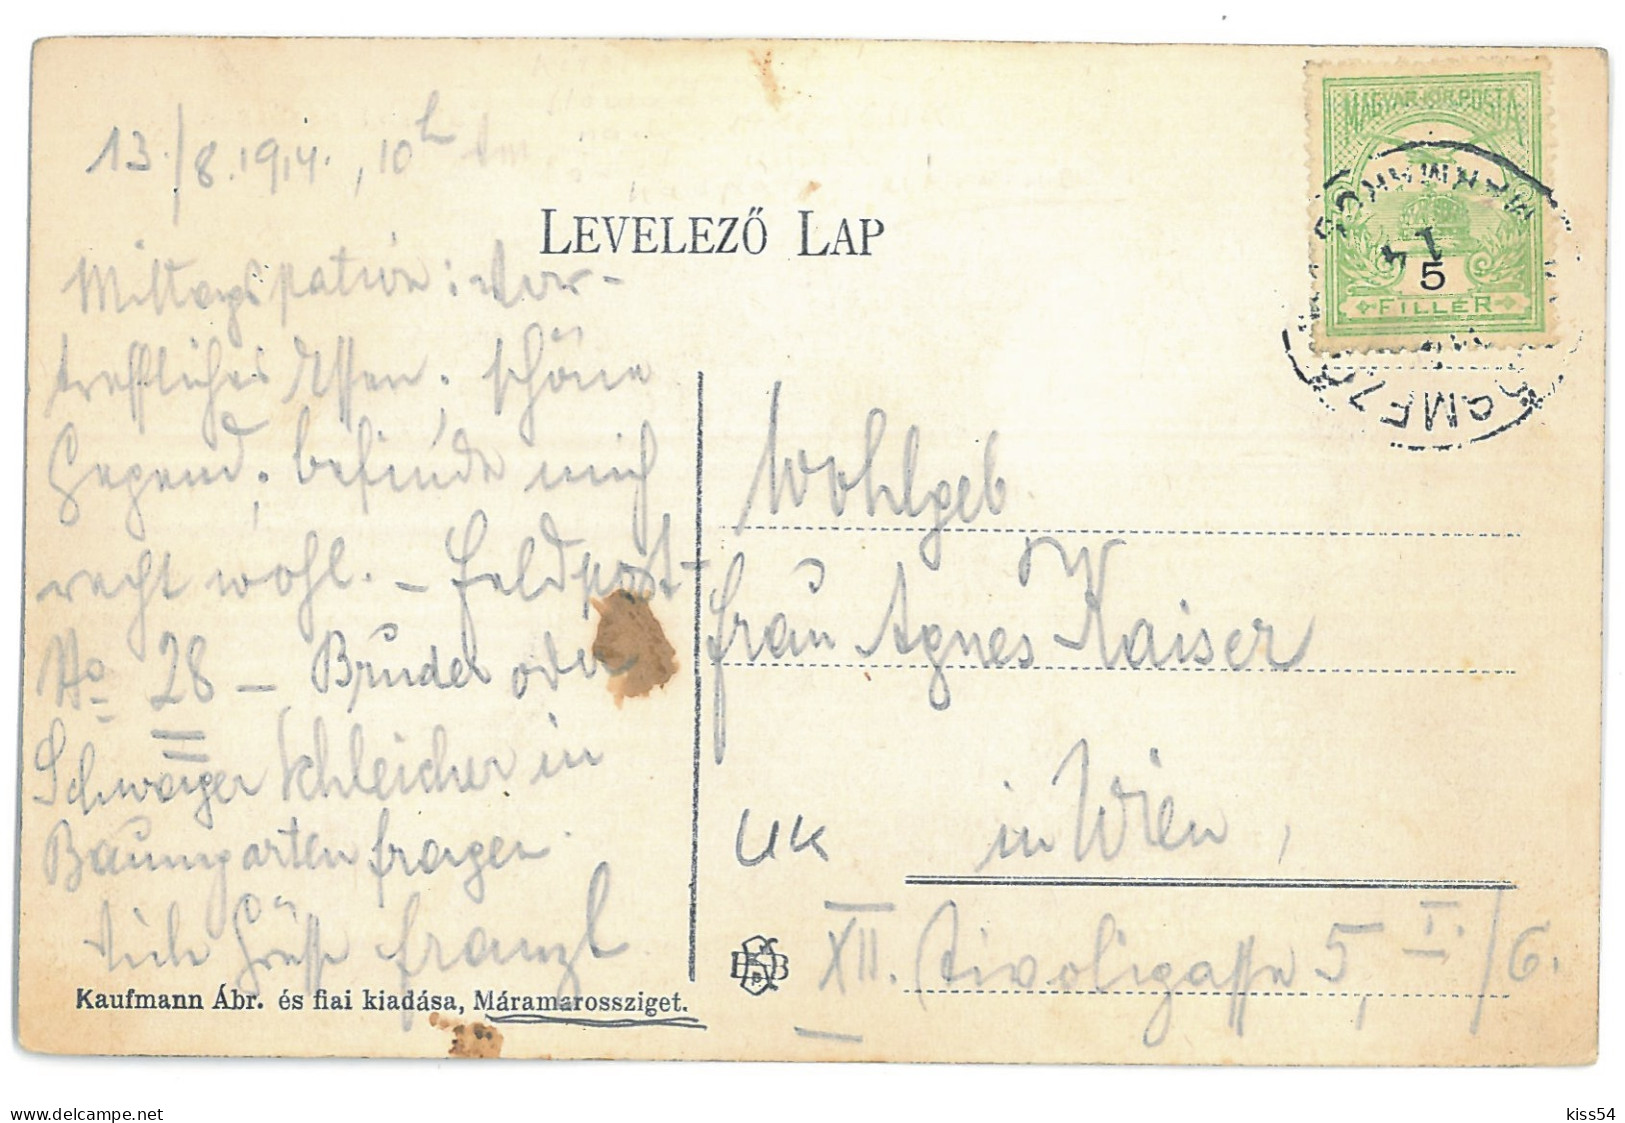 13./8.1914., 10h
LEVELEZŐ LAP
MAGYAR KIR. POSTA
5
FILLÉR
Mittagsstation: Vor-
treffliches Essen. schöne
Gegend, befinde mich
recht wohl. – Feldpost-
No 28 – Bruder oder
Schwager Schleicher in
Baumgarten fragen.
Grüße Franzl
Wohlgeb
Frau Agnes Kaiser
in Wien,
XII. Tivoligasse 5, I./6.
Kaufmann Ábr. és fiai kiadása, Máramarossziget.
delcampe.net
kiss54